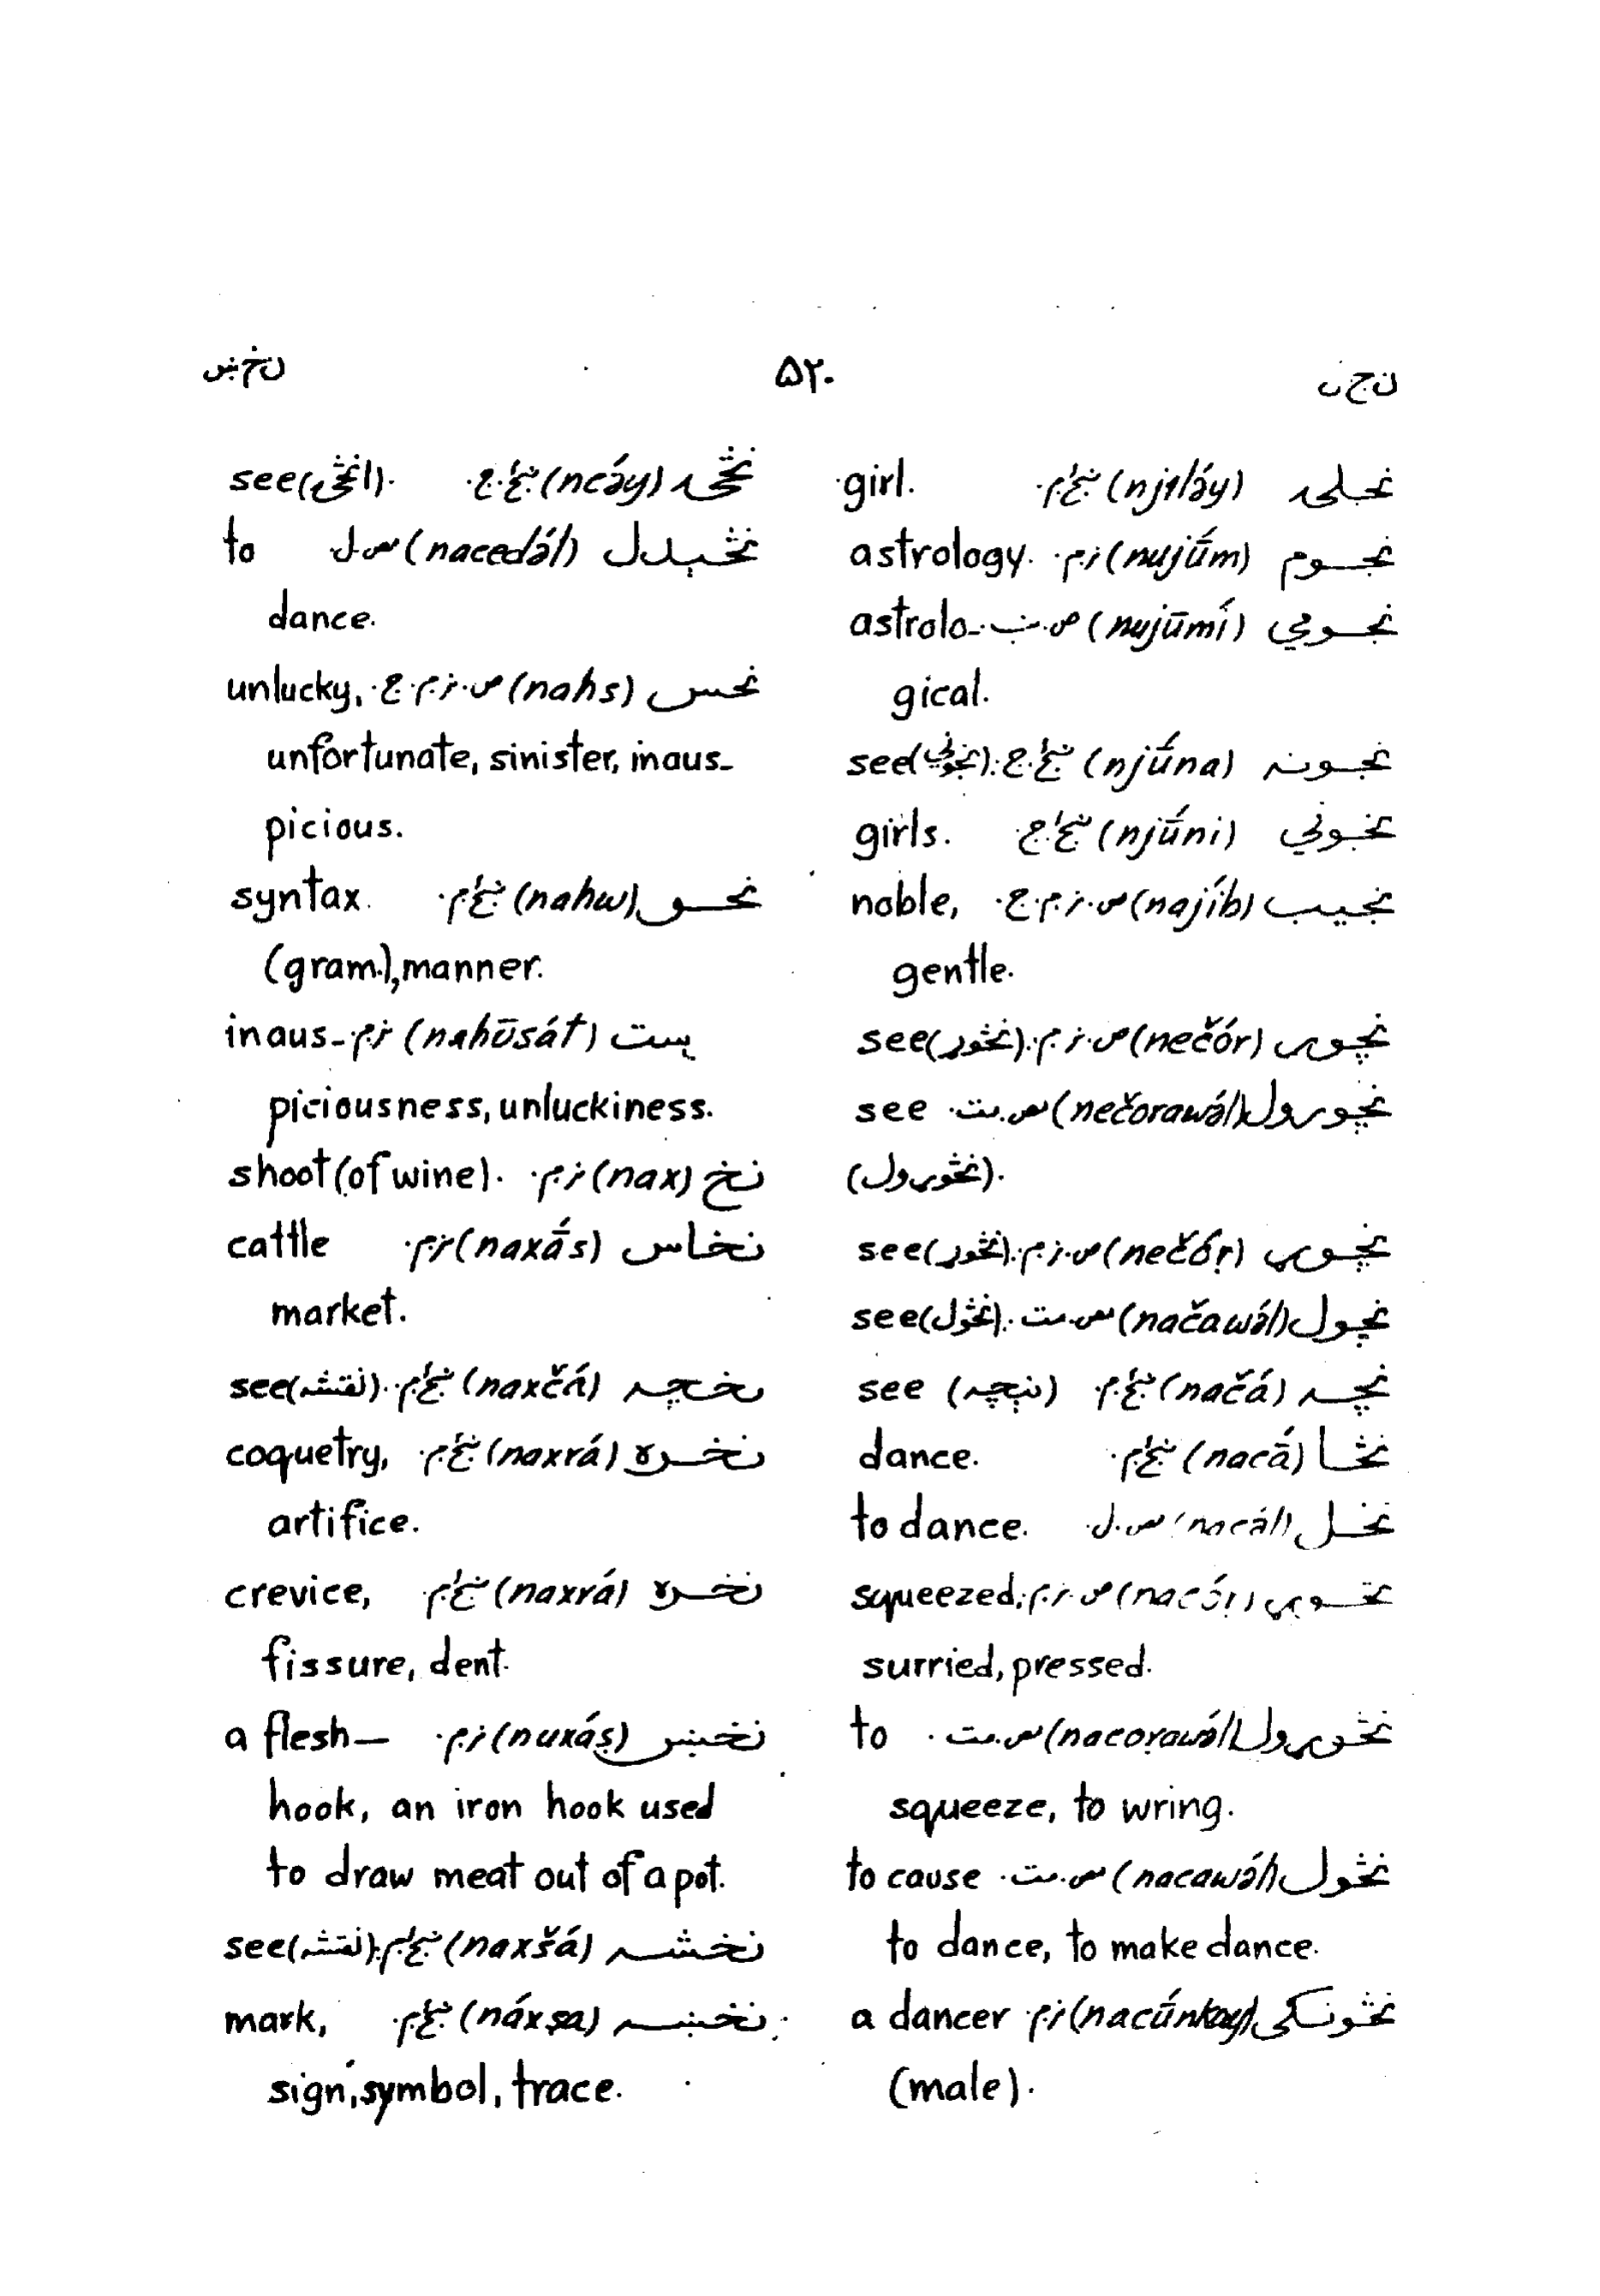 ن ج ب
۵۲۰
ن خ ښ
نجلۍ (njɨlә́y) ښځ.م. girl.
نجوم (nujū́m) نر.م. astrology.
نجومي (nujūmí) ص.نب. astrolo-
gical.
نجونه (njū́na) ښځ.ج. see(نجوني).
نجوني (njū́ni) ښځ.ج. girls.
نجيب (najíb) ص.نر.م.ج. noble,
gentle.
نچور (nečór) ص.نر.م. see(نڅوړ).
نچورول (nečorawә́l) مص.مت. see
(نڅوړول).
نچوړ (nečóṛ) ص.نر.م. see(نڅوړ).
نچول (načawә́l) مص.مت. see(نڅول).
نچه (načá) ښځ.م. see (نېچه)
نڅا (nacā́) ښځ.م. dance.
نڅل (nacә́l) مص.ل. to dance.
نڅوړ (nacóṛ) ص.نر.م. squeezed,
surried, pressed.
نڅوړول (nacoṛawә́l) مص.مت. to
squeeze, to wring.
نڅول (nacawә́l) مص.مت. to cause
to dance, to make dance.
نڅونکی (nacūnkay) نر.م. a dancer
(male).
نڅۍ (ncә́y) ښځ.ج. see(انڅۍ).
نڅېدل (nacedә́l) مص.ل. to
dance.
نحس (nahs) ص.نر.م.ج. unlucky,
unfortunate, sinister, inaus-
picious.
نحو (nahw) ښځ.م. syntax
(gram.), manner.
(nahūsát) نر.م. inaus-
piciousness, unluckiness.
نخ (nax) نر.م. shoot (of wine).
نخاس (naxā́s) نر.م. cattle
market.
نخچه (naxčá) ښځ.م. see(نقشه).
نخره (naxrá) ښځ.م. coquetry,
artifice.
نخره (naxrá) ښځ.م. crevice,
fissure, dent.
نخښ (nuxáṣ) نر.م. a flesh—
hook, an iron hook used
to draw meat out of a pot.
نخشه (naxšá) ښځ.م. see(نقشه).
نخښه (náxṣa) ښځ.م. mark,
sign, symbol, trace.